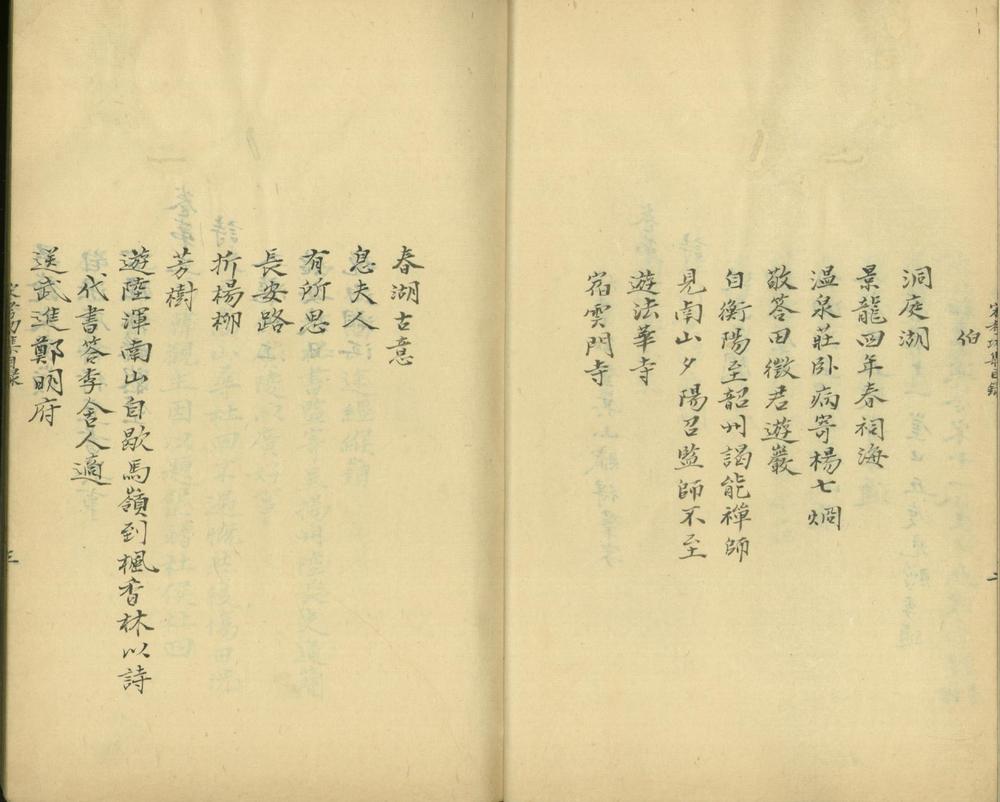 宋考功集目錄
二
伯
洞庭湖
景龍四年春祠海
温泉莊卧病寄楊七烱
敬答田徵君遊巖
自衡陽至韶州謁能禪師
見南山夕陽召監師不至
遊法華寺
宿雲門寺
春湖古意
息夫人
有所思
長安路
折楊柳
芳樹
遊陸渾南山自歇馬嶺到楓香林以詩
代書答李舍人適
送武進鄭明府
宋考功集目錄
三